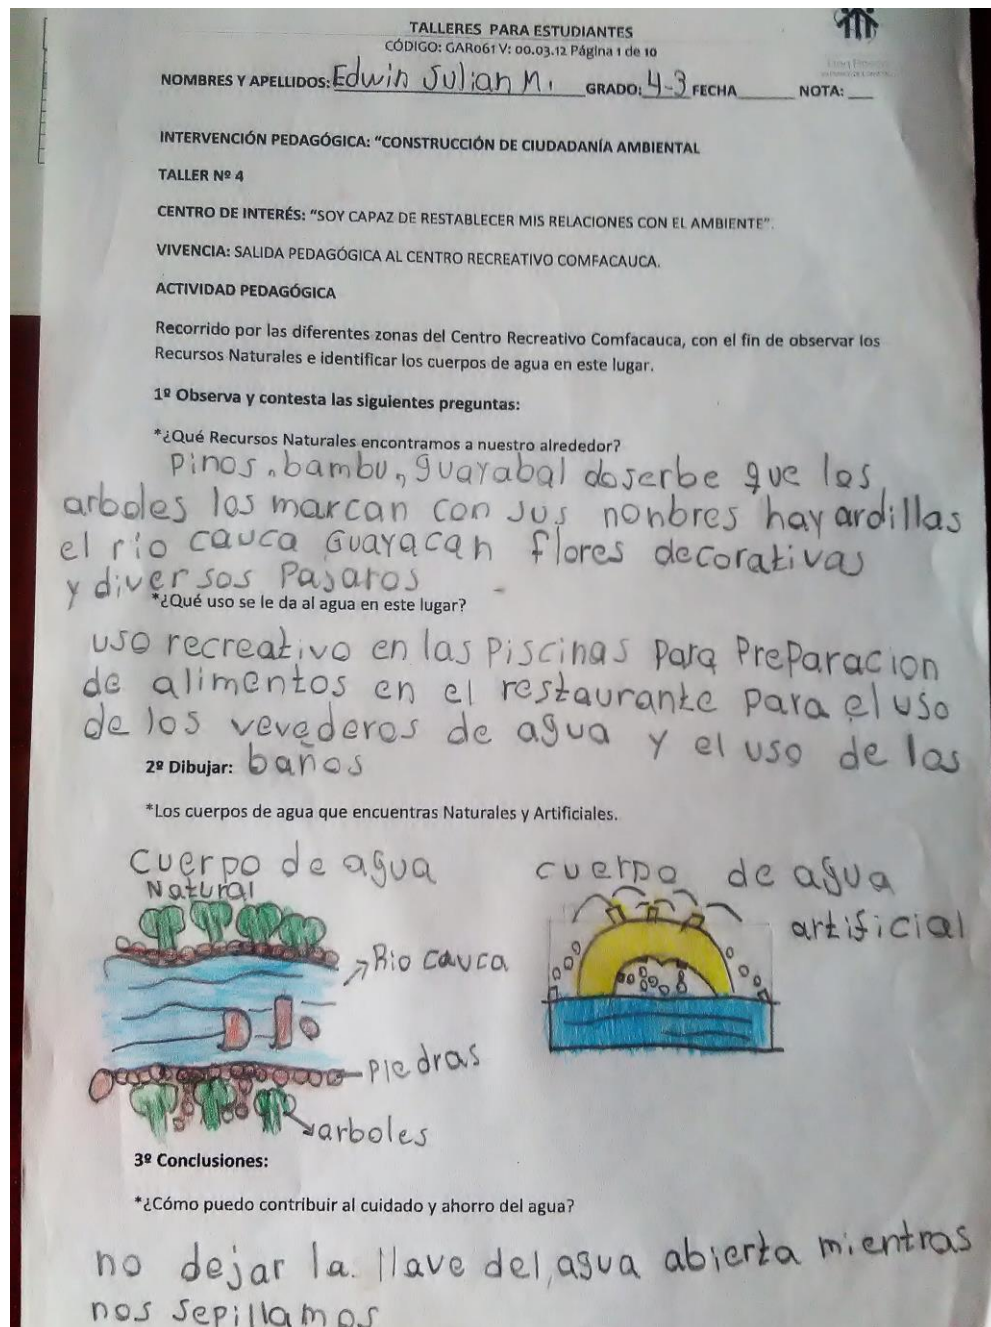 TALLERES PARA ESTUDIANTES
CÓDIGO: GAR061 V: 00.03.12 Página 1 de 10
NOMBRES Y APELLIDOS: Edwin Julian M. GRADO: 4-3 FECHA______ NOTA: ___
INTERVENCIÓN PEDAGÓGICA: “CONSTRUCCIÓN DE CIUDADANÍA AMBIENTAL
TALLER Nº 4
CENTRO DE INTERÉS: “SOY CAPAZ DE RESTABLECER MIS RELACIONES CON EL AMBIENTE”.
VIVENCIA: SALIDA PEDAGÓGICA AL CENTRO RECREATIVO COMFACAUCA.
ACTIVIDAD PEDAGÓGICA
Recorrido por las diferentes zonas del Centro Recreativo Comfacauca, con el fin de observar los
Recursos Naturales e identificar los cuerpos de agua en este lugar.
1º Observa y contesta las siguientes preguntas:
*¿Qué Recursos Naturales encontramos a nuestro alrededor?
Pinos, bambu, guayabal doserbe que los
arboles los marcan con sus nonbres hay ardillas
el rio cauca Guayacan flores decorativas
y diversos Pajaros
*¿Qué uso se le da al agua en este lugar?
uso recreativo en las Piscinas Para Preparacion
de alimentos en el restaurante para el uso
de los vevederos de agua y el uso de los
2º Dibujar: baños
*Los cuerpos de agua que encuentras Naturales y Artificiales.
Cuerpo de agua
Natural
Rio cauca
Piedras
arboles
cuerpo de agua
artificial
3º Conclusiones:
*¿Cómo puedo contribuir al cuidado y ahorro del agua?
no dejar la llave del agua abierta mientras
nos sepillamos